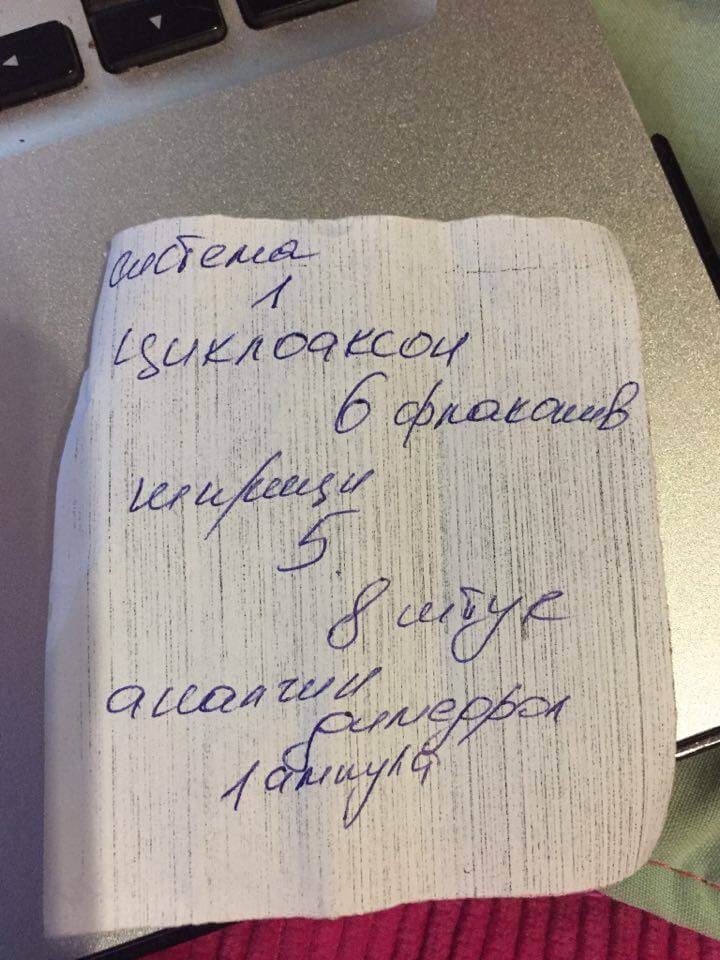 система
1
циклоаксон
6 флаконив
шприци
5
8 штук
аналгин
димедрол
1 ампула